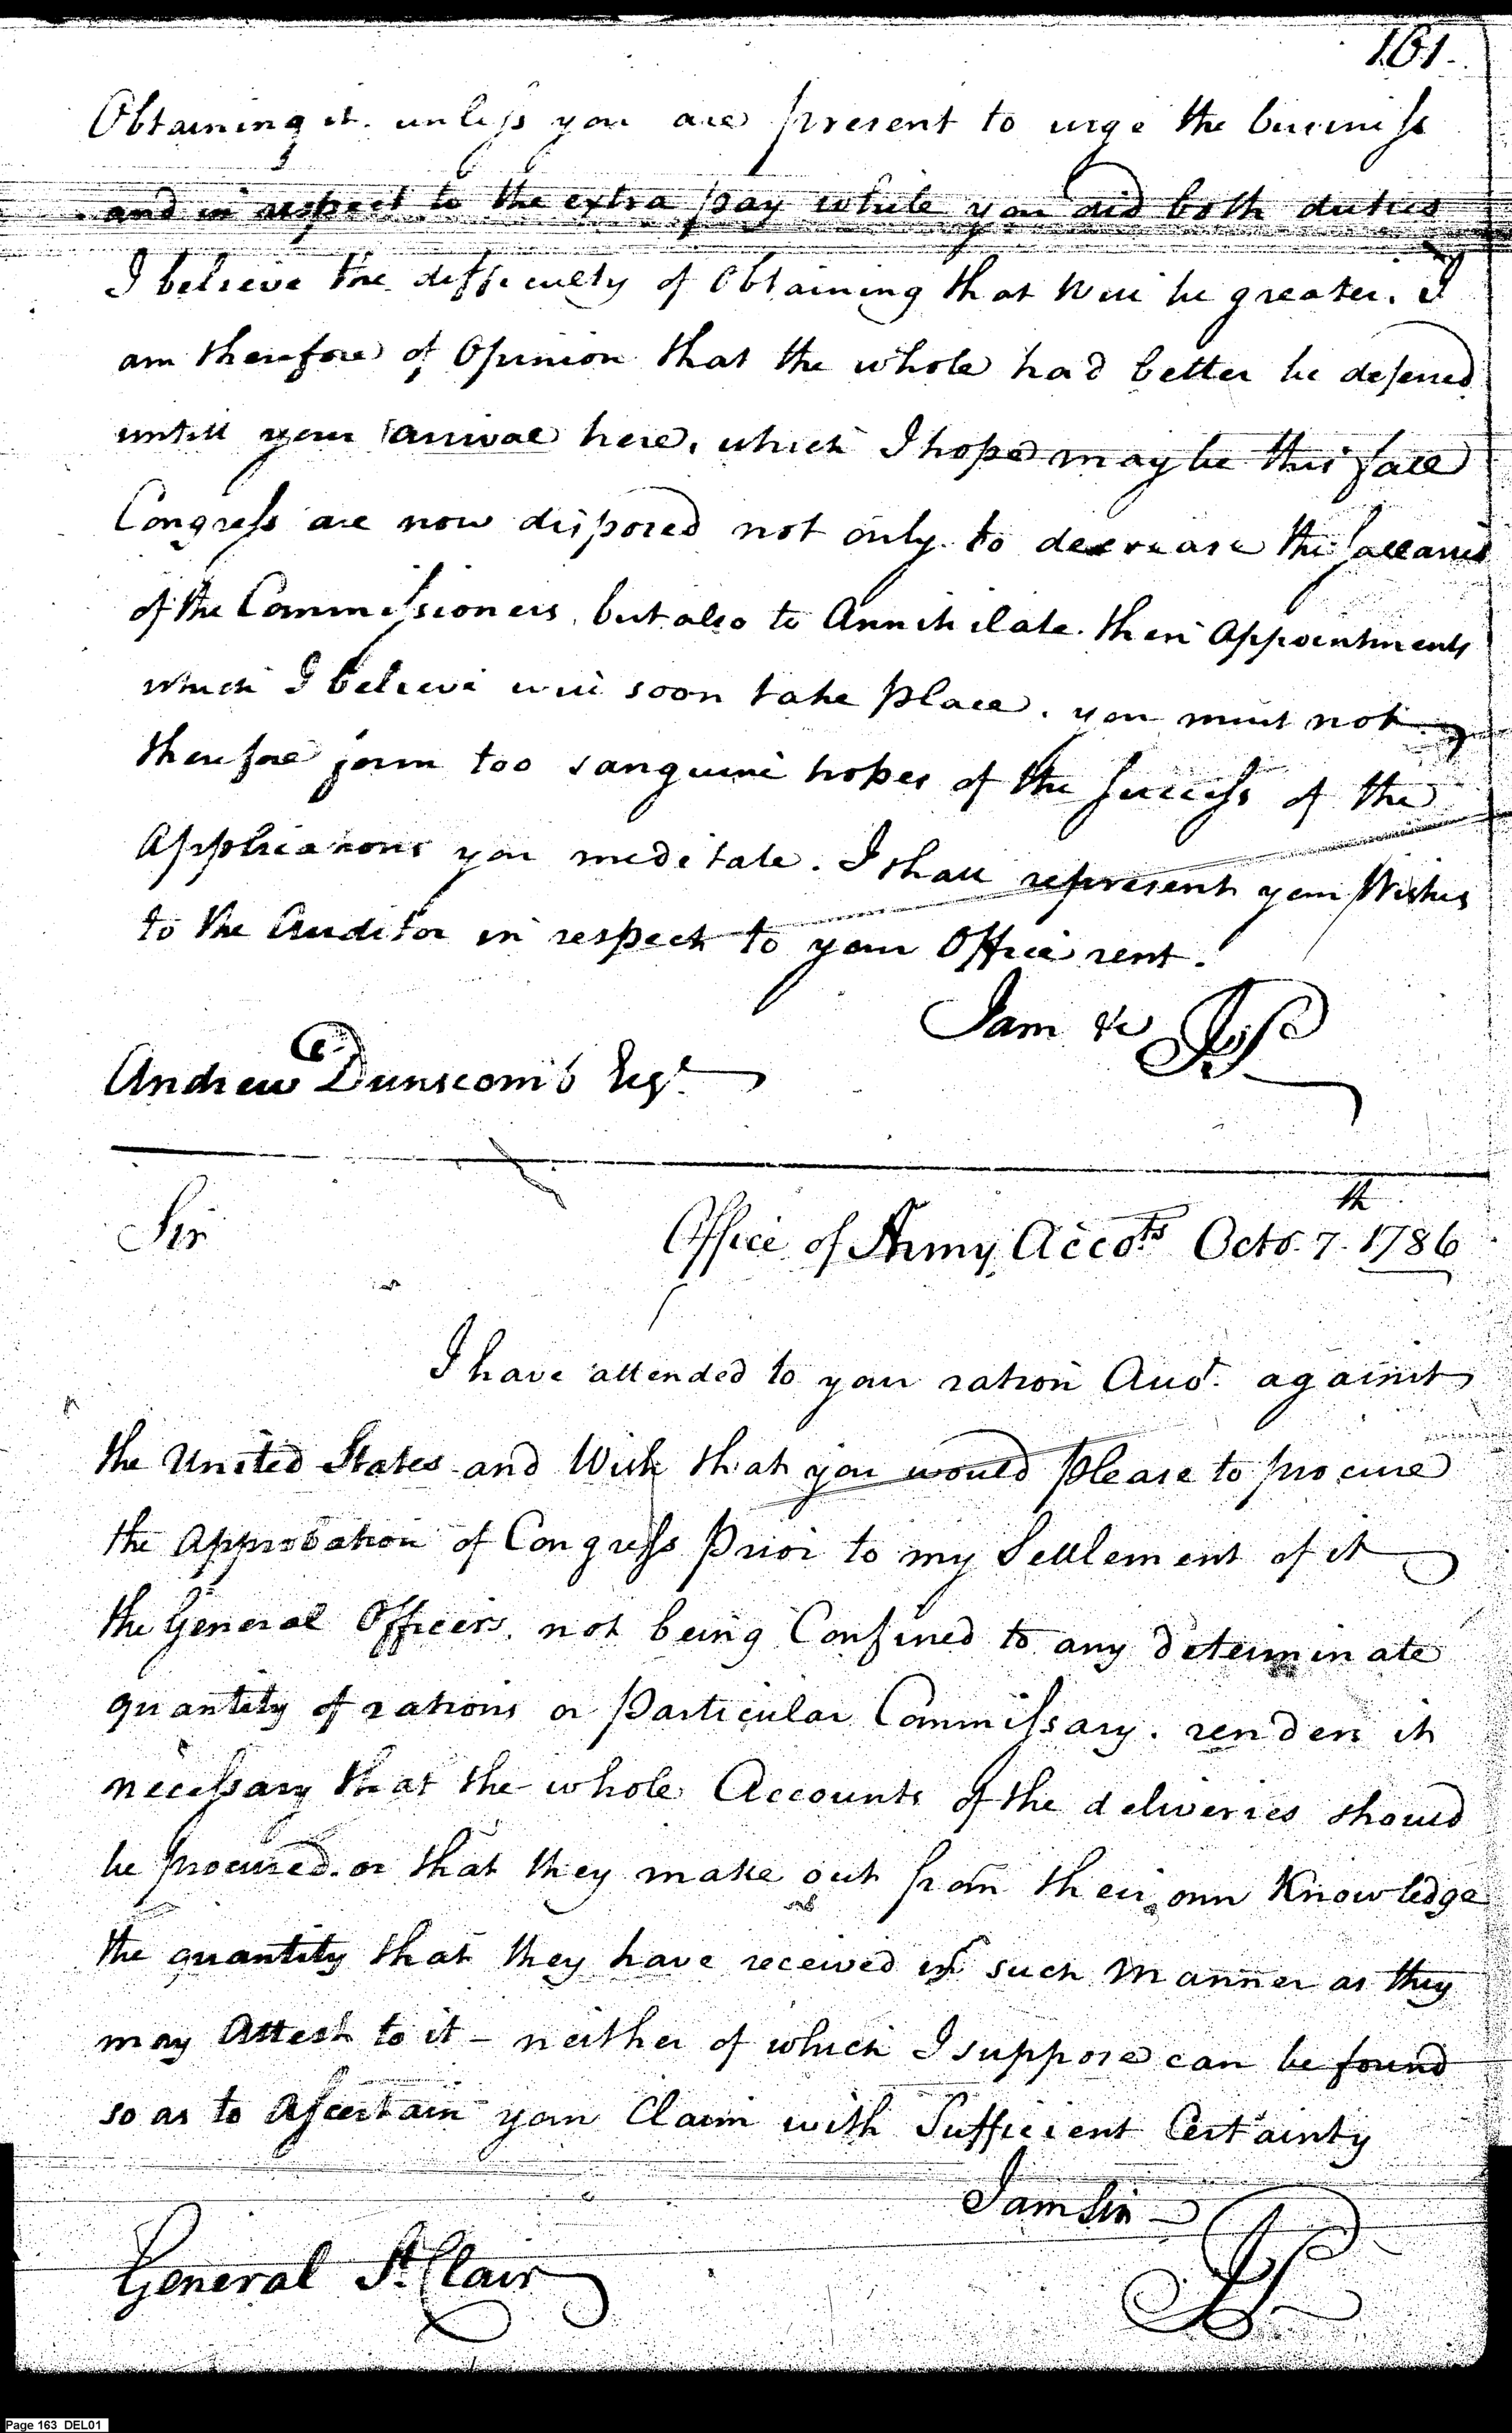 161.
Obtaining it. unless you are present to urge the business
and in respect to the extra pay while you did both duties
I believe the difficulty of Obtaining that will be greater. I
am therefore of Opinion that the whole had better be defered
untill your arrival here, which I hope may be this fall
Congress are now disposed not only to decrease the sallaries
of the Commissioners, but also to Annihilate their Appointments
which I believe will soon take place. you must not
therefore form too sanguine hopes of the success of the
Applications you meditate. I shall represent your Wishes
to the Auditor in respect to your Office rent.
I am &c JP
Andrew Dunscomb Esqr.
Sir
Office of Army Accots Octo. 7th. 1786
I have attended to your ration Acct. against
the United States and Wish that you would please to procure
the Approbation of Congress Prior to my Settlement of it
the General Officers, not being Confined to any determinate
quantity of rations or Particular Commissary. renders it
necessary that the whole Accounts of the deliveries should
be procured. or that they make out from their own Knowledge
the quantity that they have received in such Manner as they
may Attest to it – neither of which I suppose can be found
so as to Ascertain your Claim with Sufficient Certainty
I am Sir
JP
General St. Clair
Page 163 DEL01